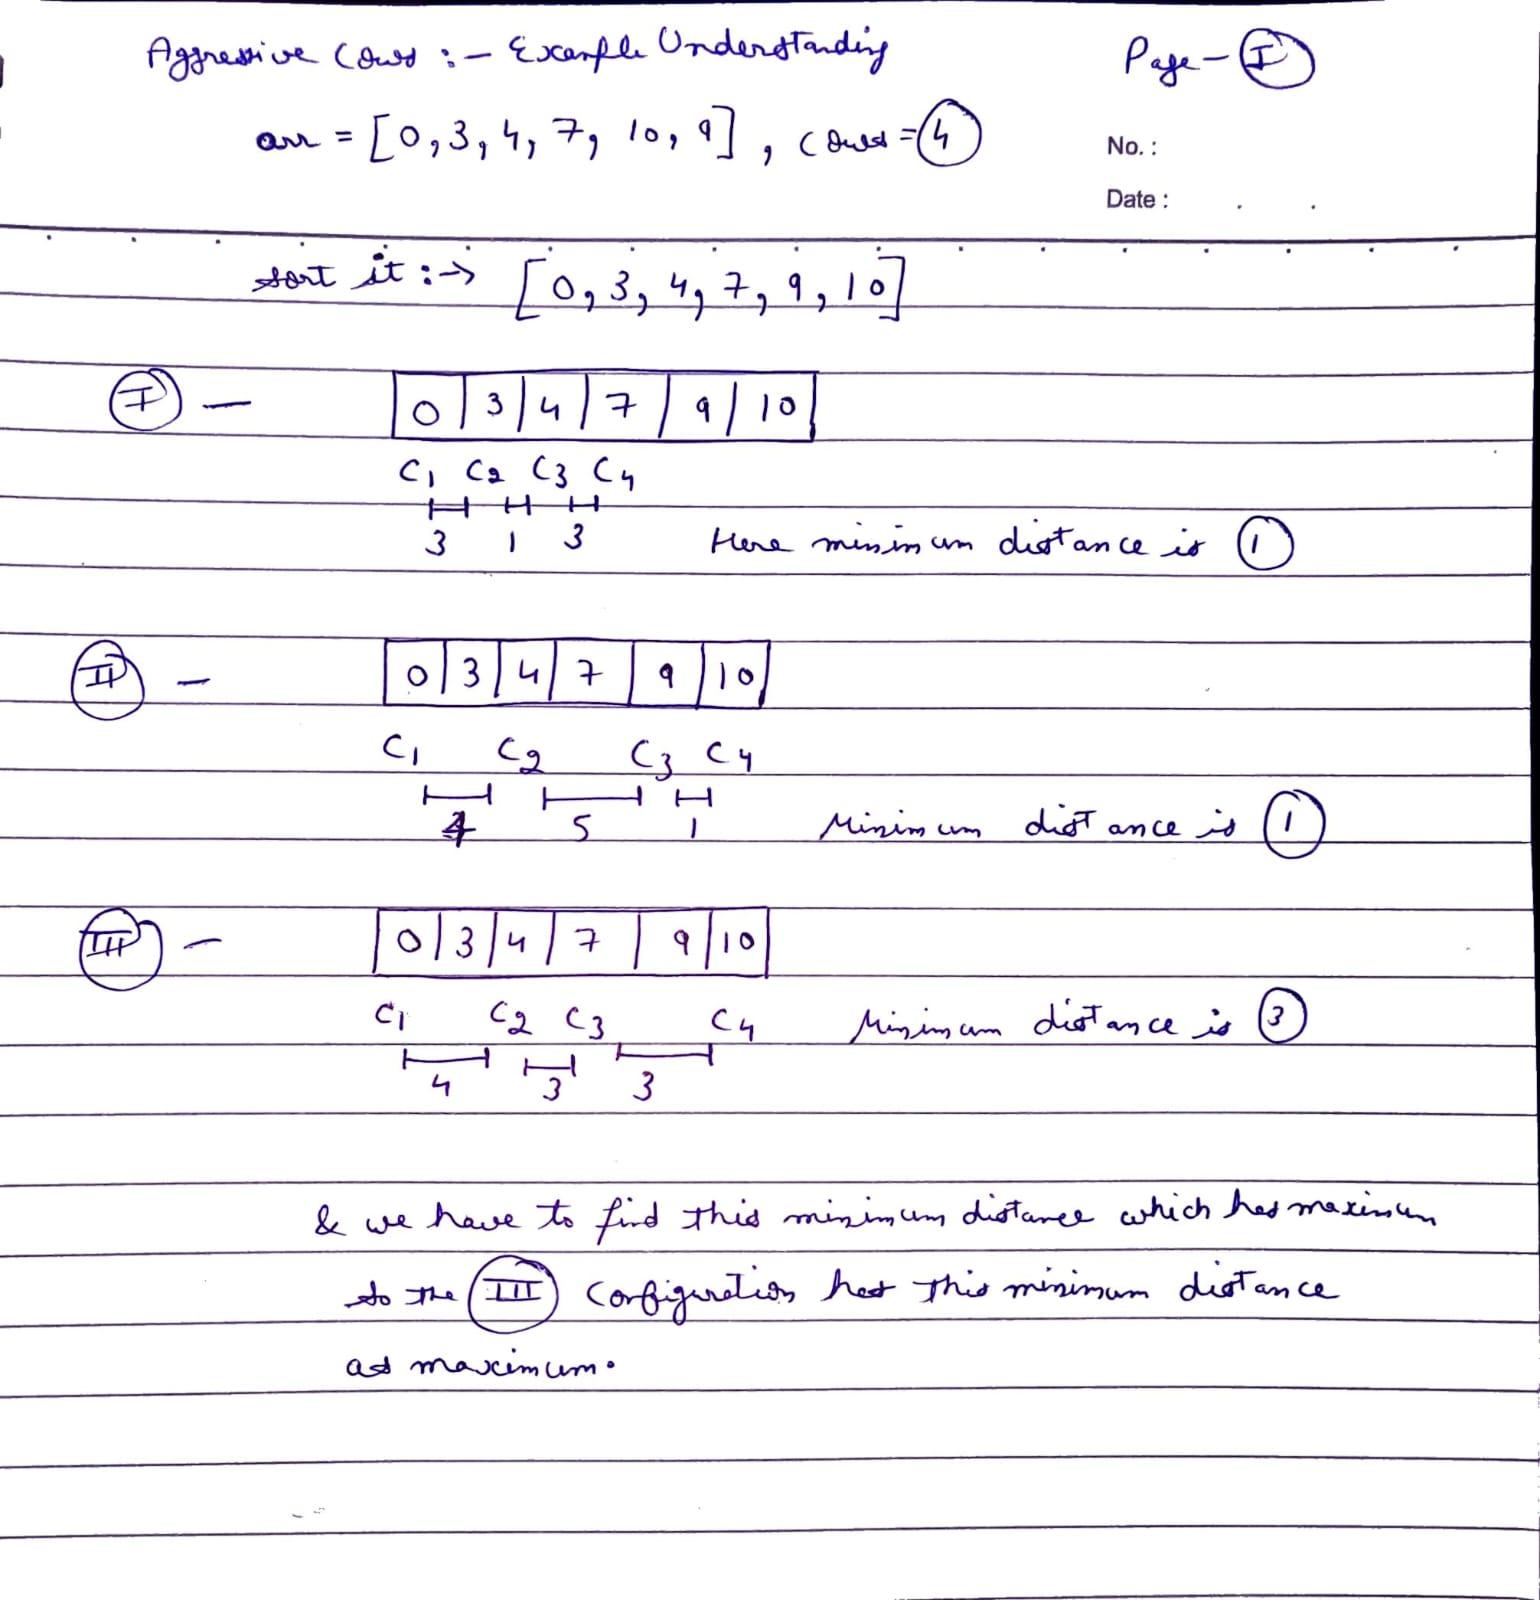 Aggressive Cows :- Example Understanding
Page - I
arr = [0, 3, 4, 7, 10, 9] , cows = 4
No. :
Date :
sort it :-> [0, 3, 4, 7, 9, 10]
I - 0 3 4 7 9 10
C1 C2 C3 C4
3 1 3 Here minimum distance is 1
II - 0 3 4 7 9 10
C1 C2 C3 C4
4 5 1 Minimum distance is 1
III - 0 3 4 7 9 10
C1 C2 C3 C4 Minimum distance is 3
4 3 3
& we have to find this minimum distance which has maximum
so the III Configuration has this minimum distance
as maximum.